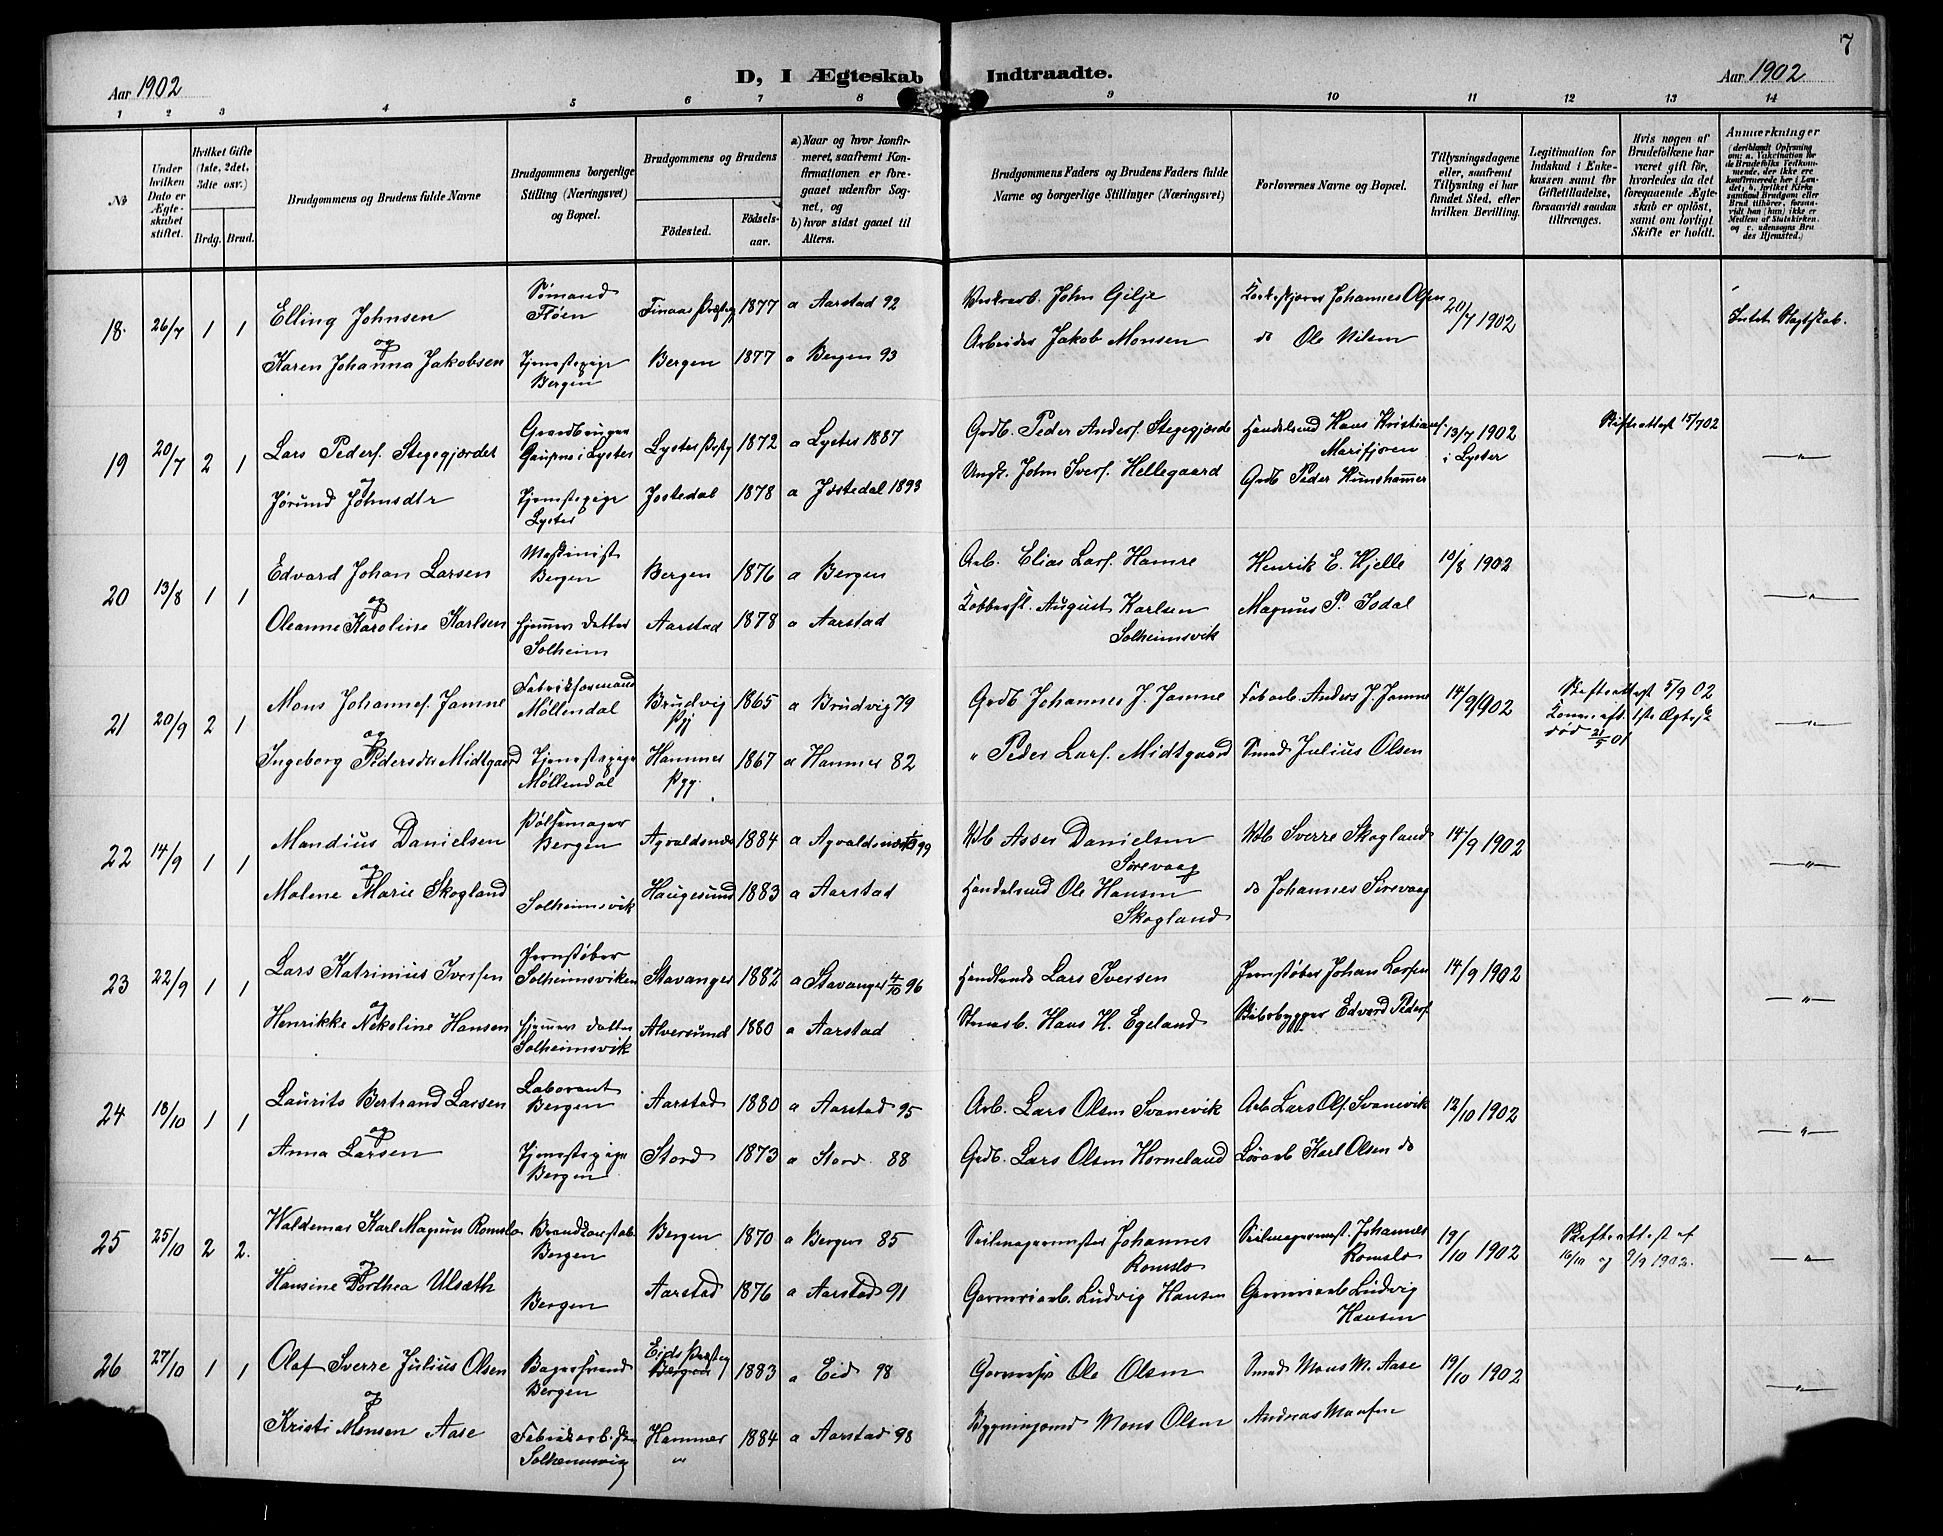 7
Aar 1902
D, I Ægteskab Indtraadte.
Aar 1902
1 2 3 4 5 6 7 8 9 10 11 12 13 14
No
Under hvilken Dato er Ægteskabet stiftet.
Hvilket Gifte (1ste, 2det, 3dte osv.)
Brdg. Brud.
Brudgommens og Brudens fulde Navne
Brudgommens borgerlige Stilling (Næringsvei) og Bopæl.
Brudgommens og Brudens
Födested. Födselsaar.
a) Naar og hvor konfirmeret, saafremt Konfirmationen er foregaaet udenfor Sognet, og
b) hvor sidst gaaet til Alters.
Brudgommens Faders og Brudens Faders fulde Navne og borgerlige Stillinger (Næringsvei)
Forlovernes Navne og Bopæl.
Tillysningsdagene eller, saafremt Tillysning ei har fundet Sted, efter hvilken Bevilling.
Legitimation for Indskud i Enkekassen samt for Giftetilladelse, forsaavidt saadan tiltrænges.
Hvis nogen af Brudefolkene har været gift för, hvorledes da det foregaaende Ægteskab er oplöst, samt om lovligt Skifte er holdt.
Anmærkninger (deriblandt Oplysning om: a. Vakcination for de Brudefolks Vedkommende, der ikke ere konfirmerede her i Landet, b. hvilket Kirkesamfund Brudgom eller Brud tilhörer, forsaavidt han (hun) ikke er Medlem af Statskirken, og c. udensogns Brudes Hjemsted.)
18. 26/7 1 1 Elling Johnsen Sømand Fløen Finaas Præstg 1877 a Aarstad 92 John Gilje Johannes Olsen 20/7 1902 Intet Slegtskab.
og
Karen Johanna Jakobsen Tjenestepige Bergen Bergen 1877 a Bergen 93 Arbeider Jakob Monsen do Ole Nilsen
19 20/7 2 1 Lars Peders. Stegegjerdet Gaardbruger Gaupne i Lyster Lyster Prstg 1872 a Lyster 1887 Grdb. Peder Anders. Stegegjerde Handelsmd Hans Kristians. Marifjøren 13/7 1902 i Lyster Skifteattest 15/7 02 — " —
og
Jørund Johnsdtr Tjenestepige Lyster Jostedal 1878 a Jostedal 1893 John Ivers. Hellegaard Grdb Peder Humshammer
20 13/8 1 1 Edvard Johan Larsen Maskinist Bergen Bergen 1876 a Bergen Arb. Elias Lars. Hamre Henrik E. Hjelle 10/8 1902 — " —
og
Oleanne Karoline Karlsen hjemmev Datter Solheim Aarstad 1878 a Aarstad Kobbersl. August Karlsen Solheimsvik Magnus P. Isdal
21 20/9 2 1 Mons Johannes. Jamne Fabrikformand Møllendal Brudvig Pgj 1865 a Brudvig 79 Grdb Johannes J. Jamne Fabarb. Anders J. Jamne 14/9 1902 Skifteattest 5/9 02 1ste død 21/5 01 — " —
og
Ingeborg Pedersdtr Midtgaard Tjenestepige Møllendal Hammer Pgj. 1867 a Hammer 82 " Peder Lars. Midtgaard Smed Julius Olsen
22 14/9 1 1 Mandius Danielsen Pølsemager Bergen Agvaldsnæs 1884 a Agvaldsnæs 99 Asser Danielsen Sirevaag Sverre Skogland 14/9 1902 — " —
og
Malene Marie Skogland Solheimsvik Haugesund 1883 a Aarstad Handelsmd Ole Hansen Skogland do Johannes Sirevaag
23 22/9 1 1 Lars Katrinius Iversen Jernstøber Solheimsviken Stavanger 1882 a Stavanger 4/10 96 Lars Iversen Jernstøber Johan Larsen 14/9 1902 — " —
og
Henrikke Nikoline Hansen hjemmev Datter Solheimsvik Alversund 1880 a Aarstad Hans H. Egeland Skibsbygger Edvard Peders.
24 18/10 1 1 Laurits Bertrand Larsen Laborant Bergen Aarstad 1880 a Aarstad 95 Arb. Lars Olsen Svanevik Arb Lars Ols. Svanevik 12/10 1902 — " —
og
Anna Larsen Tjenestepige Bergen Stord 1873 a Stord 88 Grdb. Lars Olsen Horneland Karl Olsen do
25 25/10 2 2. Waldemar Karl Magnus Romslo Brandkonstab. Bergen Bergen 1870 a Bergen 85 Seilmagermester Johannes Romslo Seilmagermst. Johannes Romslo 19/10 1902 Skifteattest af 16/10 og 9/9 1902. — " —
og
Hansine Dorthea Ulsæth Bergen Aarstad 1876 a Aarstad 91 Garveriarb. Ludvig Hansen Garveriarb Ludvig Hansen
26 27/10 1 1 Olaf Sverre Julius Olsen Bagersvend Bergen Eids Præstg Bergen 1883 a Eid 98 Ole Olsen Smed Mons M. Aase 19/10 1902 — " —
og
Kristi Monsen Aase Fabrikarb. Solheimsvig Hammer " 1884 a Aarstad 98 Bygningsmd Mons Olsen Andreas